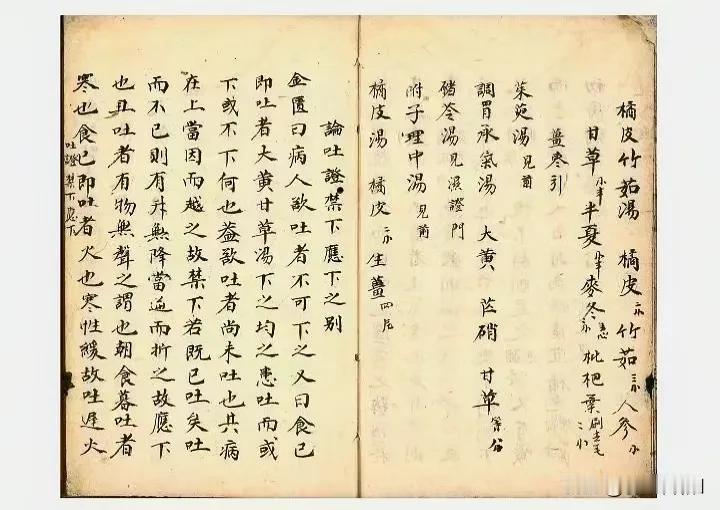 橘皮竹茹湯 橘皮 竹茹 人參
甘草 半夏 麥冬 去心 枇杷葉 刷去毛
薑枣引
茱萸湯 見前
調胃承氣湯 大黃 芒硝 甘草 等分
豬苓湯 見濕證門
附子理中湯 見前
橘皮湯 橘皮 生薑 四片
論吐證禁下應下之別
金匱曰病人欲吐者不可下之又曰食已
即吐者大黃甘草湯下之均之患吐而或
下或不下何也葢欲吐者尚未吐也其病
在上當因而越之故禁下若既已吐矣吐
而不已則有升無降當逆而折之故應下
也且吐者有物無聲之謂也朝食暮吐者
寒也食已即吐者火也寒性緩故吐遲火
吐證禁下應下